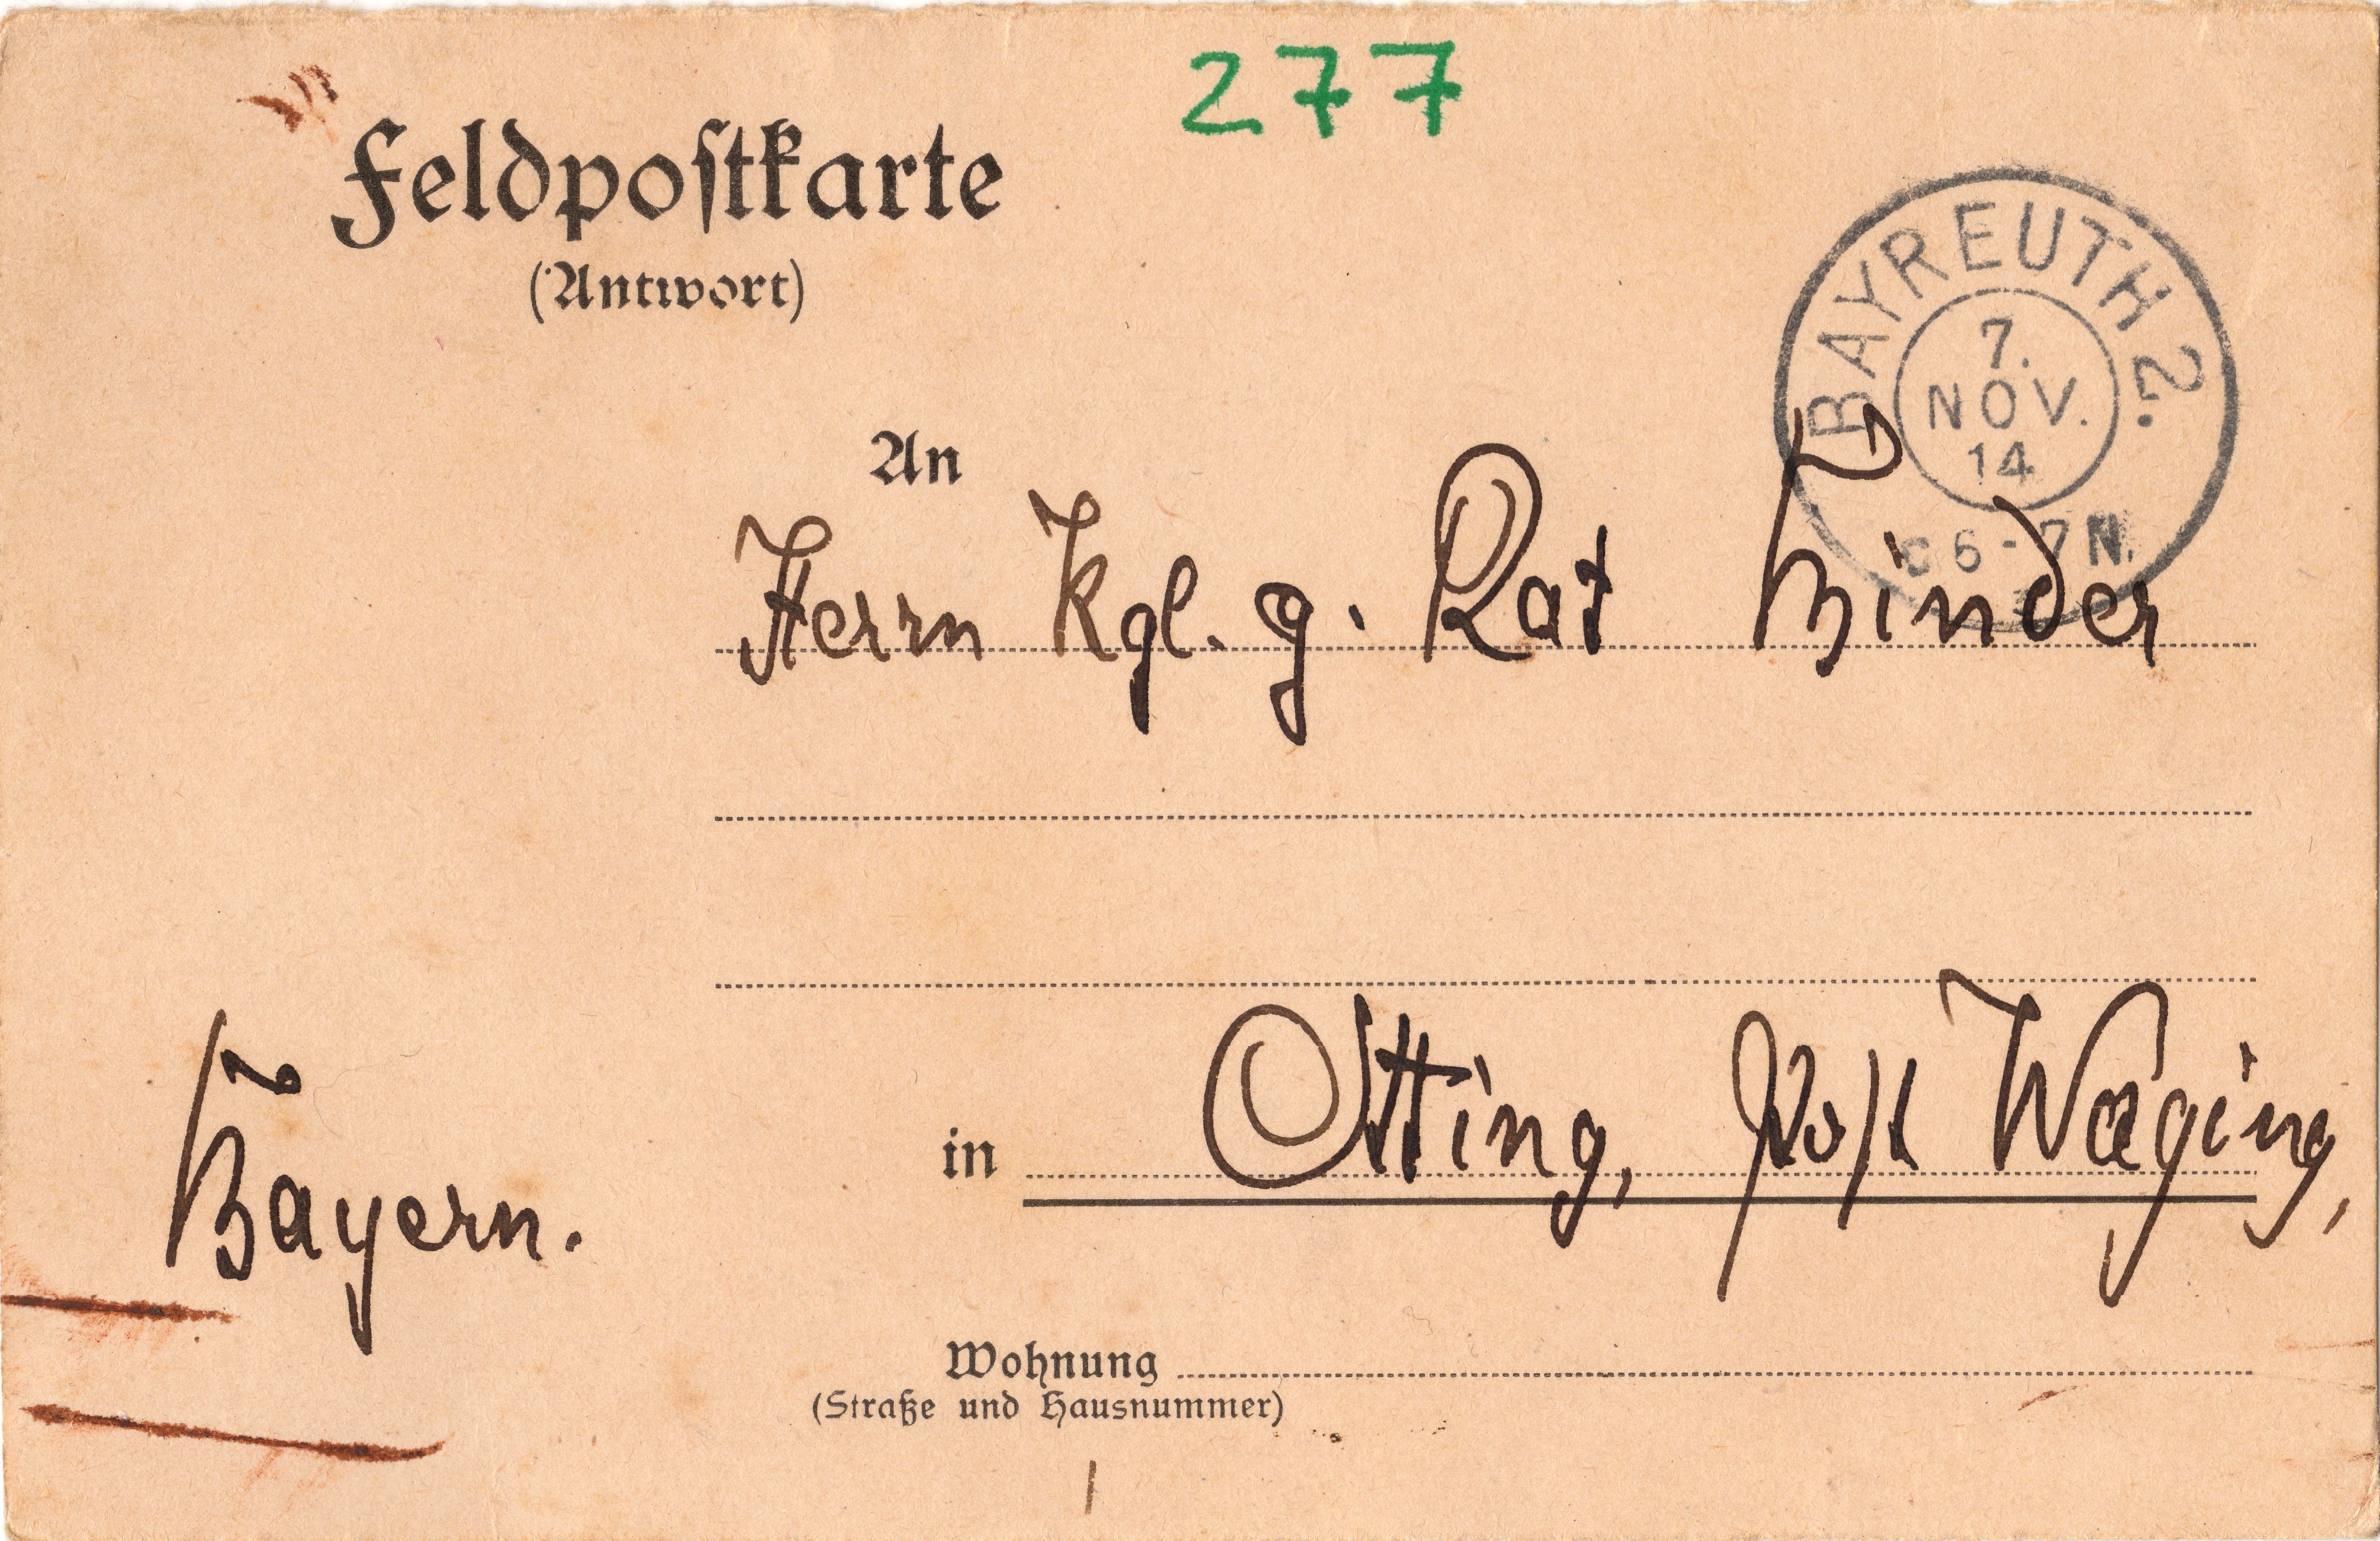 277
Feldpostkarte
(Antwort)
BAYREUTH 2.
7.
NOV.
14
6-7 N.
An
Herrn Kgl. g. Rat Binder
in Otting, Post Waging,
Bayern.
Wohnung
(Straße und Hausnummer)